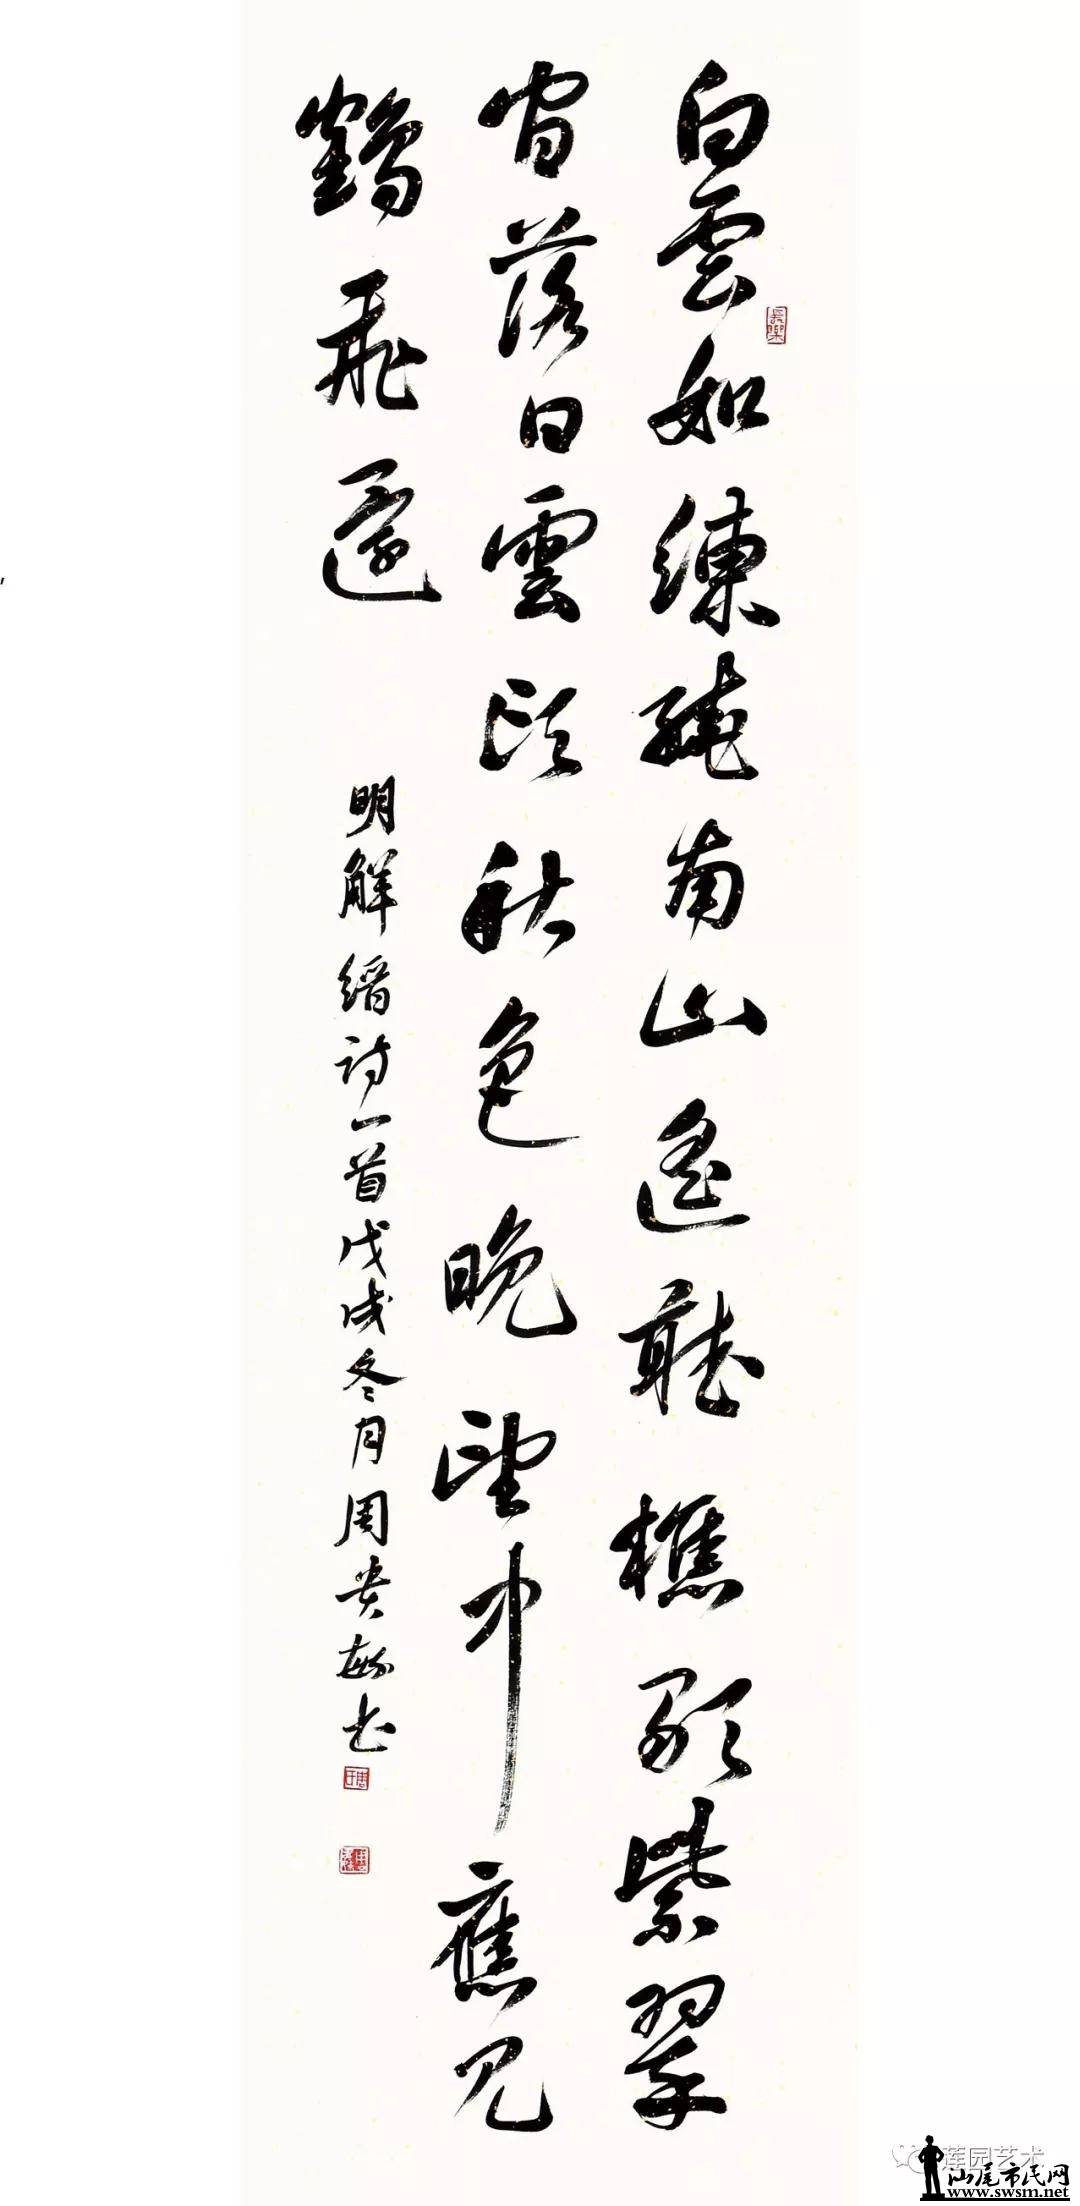 白雲如練繞南山遙聽樵歌紫翠
間落日雲頭秋色晚望中應見
鶴飛還
明解縉詩一首戊戌冬月周贵書
長樂
莲园艺术
汕尾市民网
www.swsm.net